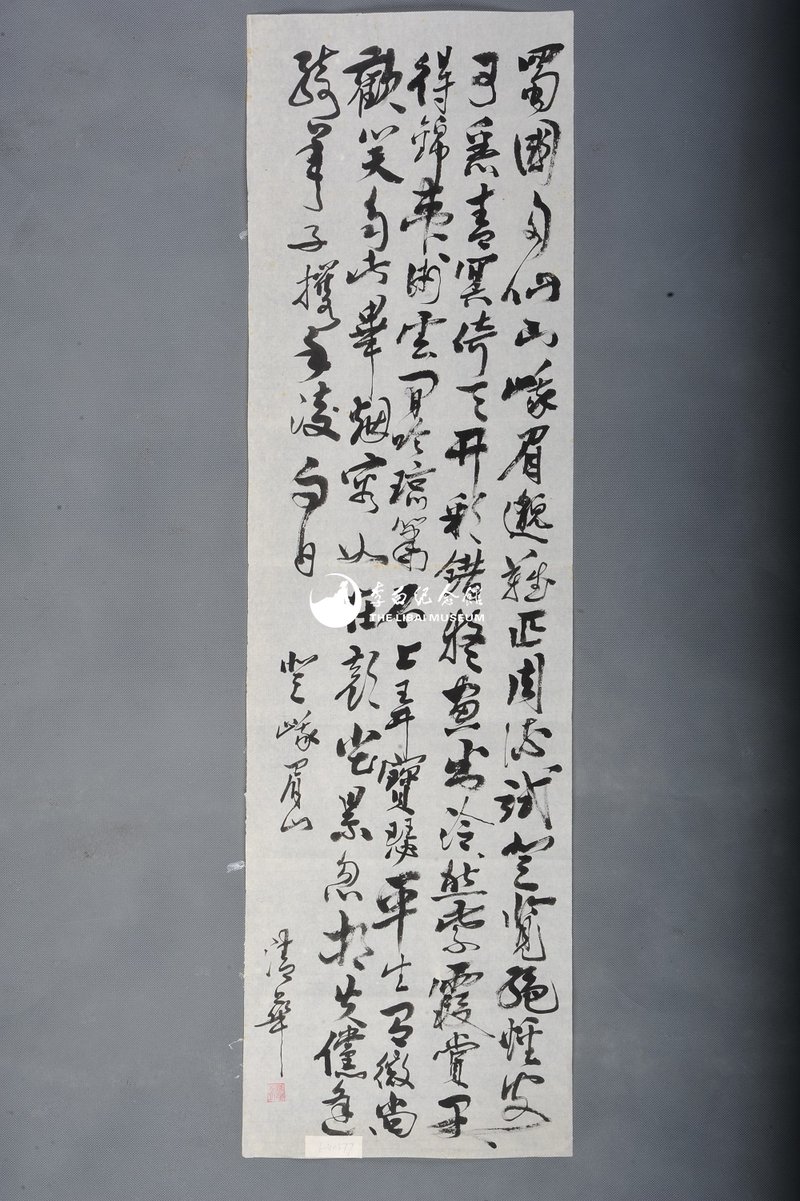 蜀國多仙山峨眉邈難匹周流試登覽絕怪安
可悉青冥倚天开彩錯疑畫出泠然紫霞賞果
得錦囊術雲間吟瓊簫石上弄寶瑟平生有微尚
歡笑自此畢烟容如在顏塵累忽相失儻逢
騎羊子攜手凌白日
登峨眉山
清華
李白纪念館
THE LIBAI MUSEUM